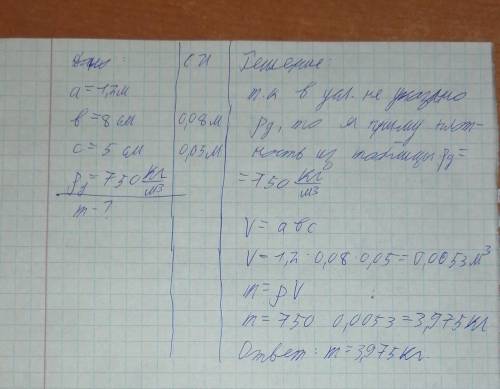 Дано:
a = 1,2 м
в = 8 см
c = 5 см
ρд = 750 кг/м3
m - ?
СИ
0,08 м
0,05 м
Решение:
т.к в усл. не указано
ρд, то я приму плот-
ность из таблицы ρд =
= 750 кг/м3
V = a в c
V = 1,2 · 0,08 · 0,05 = 0,0053 м3
m = ρV
m = 750 0,0053 = 3,975 кг
Ответ: m = 3,975 кг